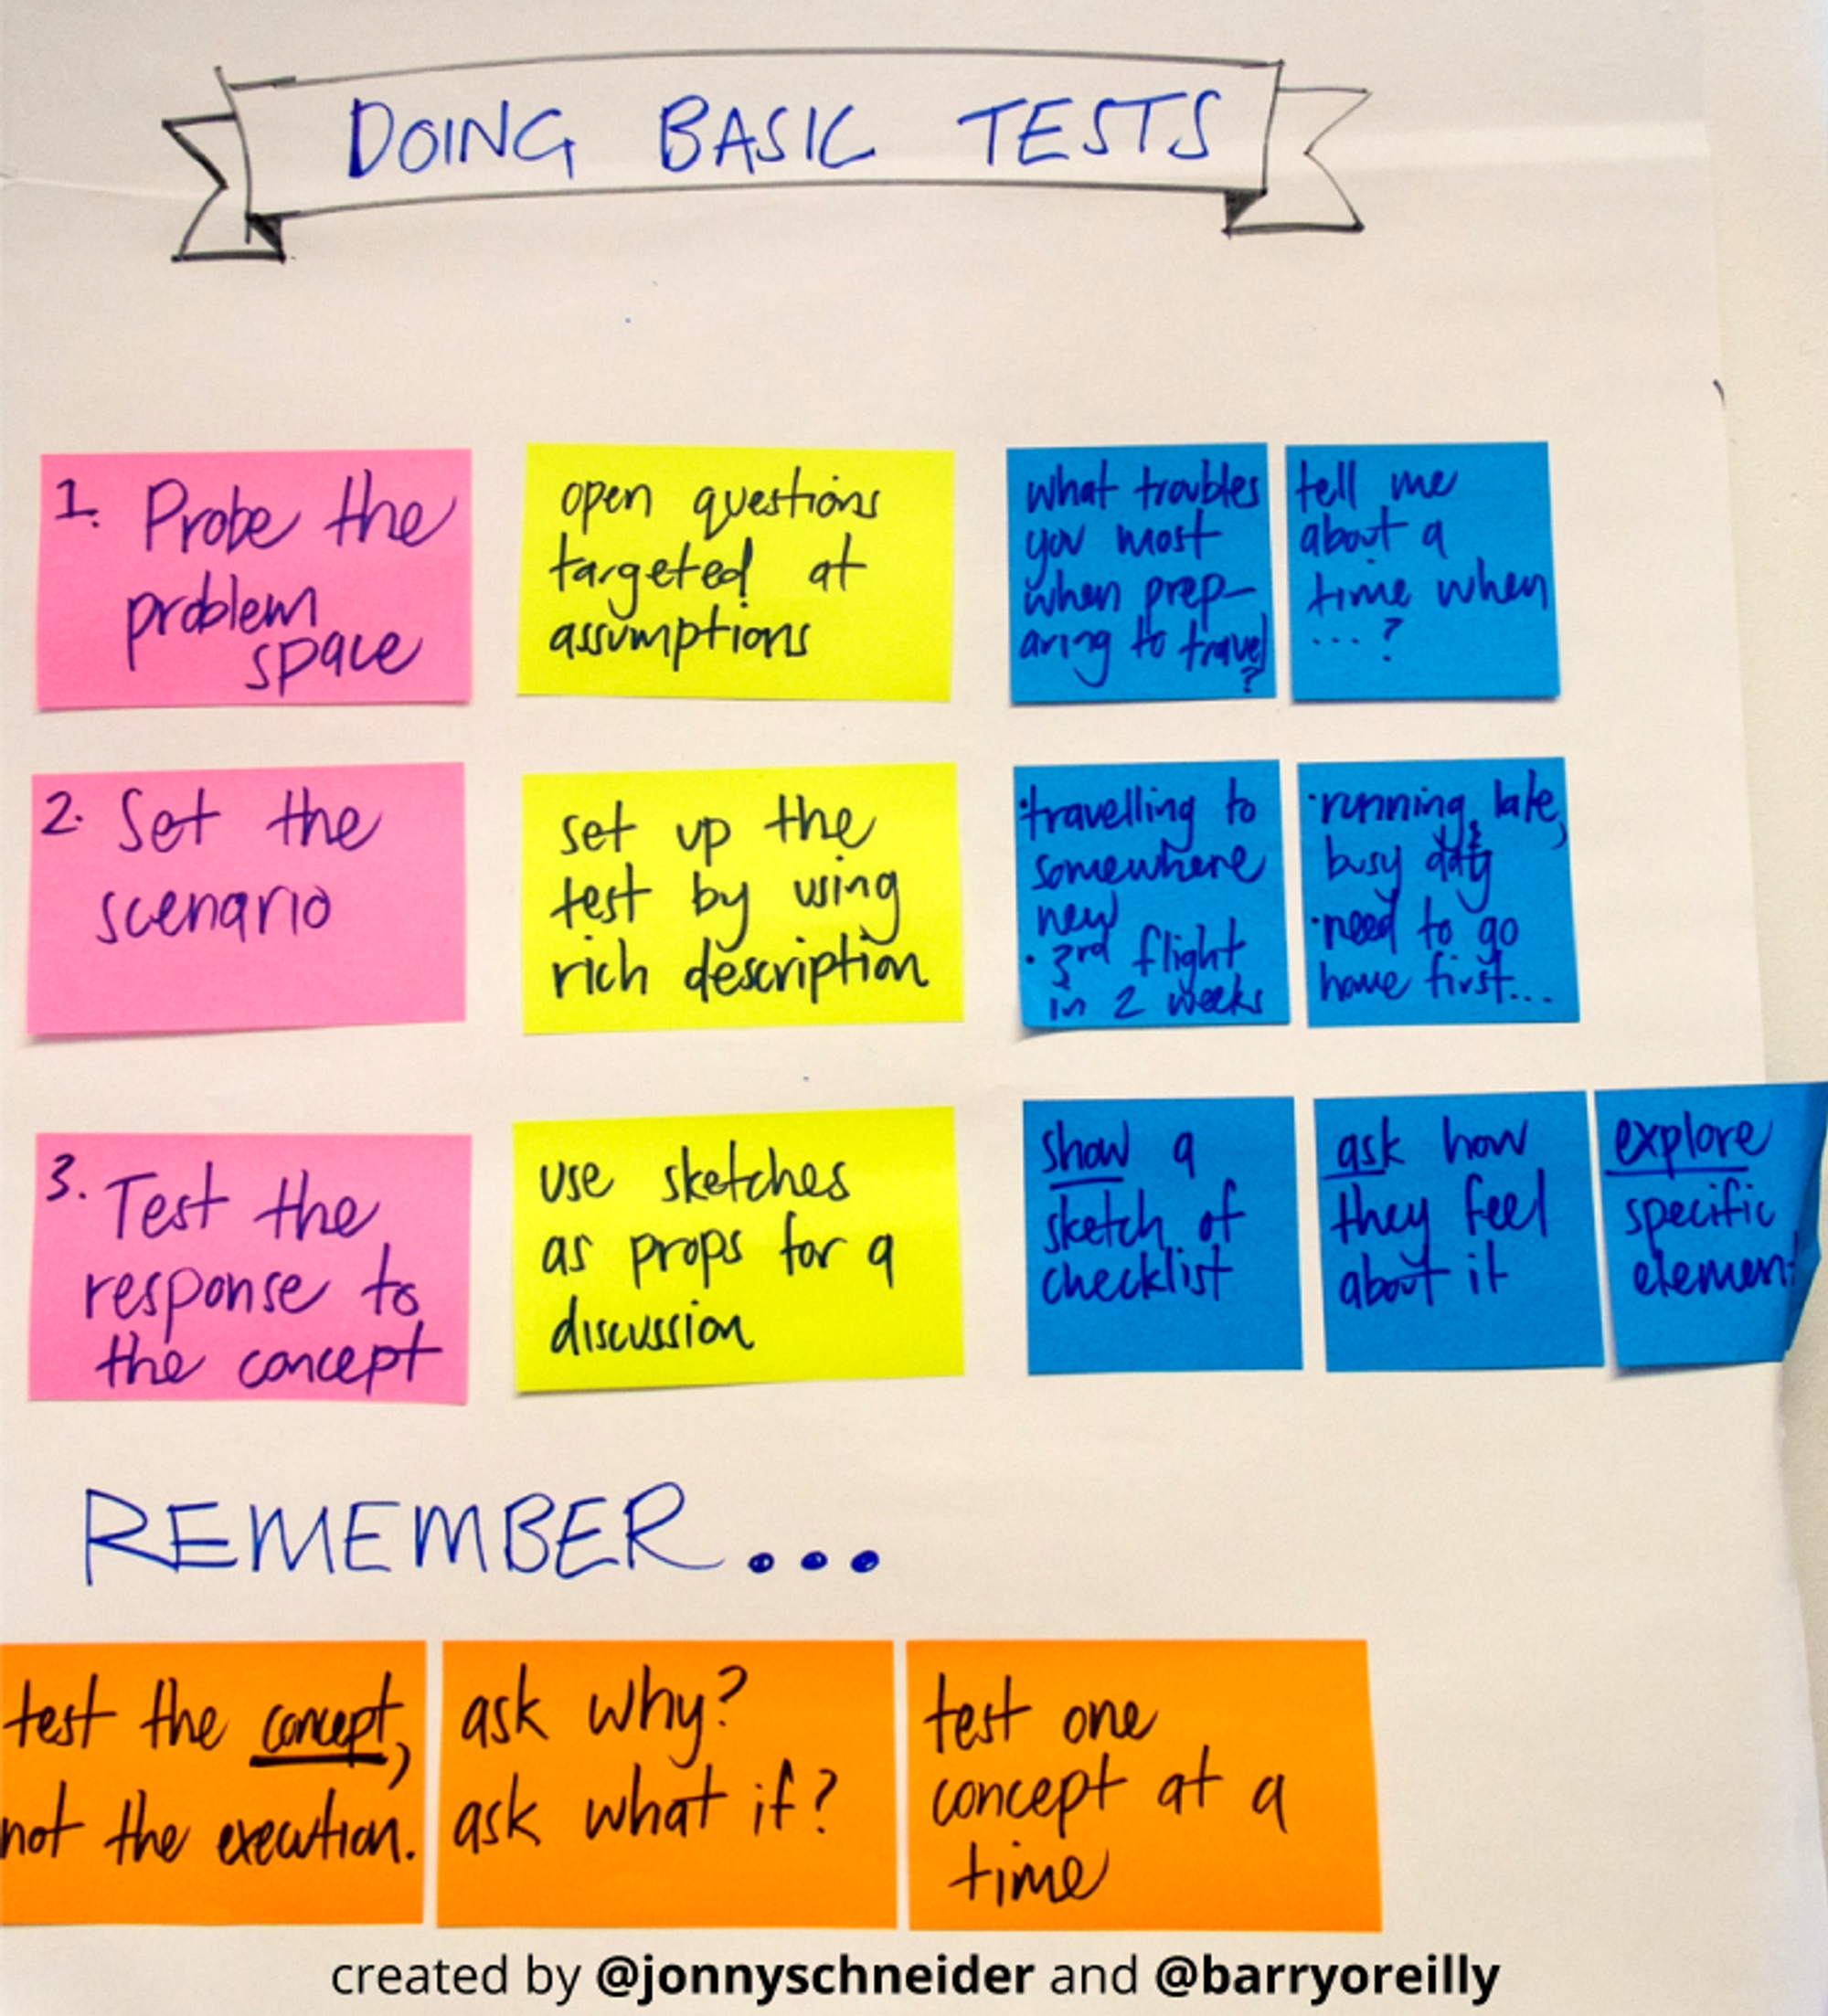 DOING BASIC TESTS
1. Probe the
problem
space
open questions
targeted at
assumptions
what troubles
you most
when prep-
aring to travel
?
tell me
about a
time when
... ?
2. Set the
scenario
set up the
test by using
rich description
·travelling to
somewhere
new
· 3rd flight
in 2 weeks
·running late,
busy day
·need to go
home first...
3. Test the
response to
the concept
use sketches
as props for a
discussion
show a
sketch of
checklist
ask how
they feel
about it
explore
specific
element
REMEMBER...
test the concept,
not the execution.
ask why?
ask what if?
test one
concept at a
time
created by @jonnyschneider and @barryoreilly